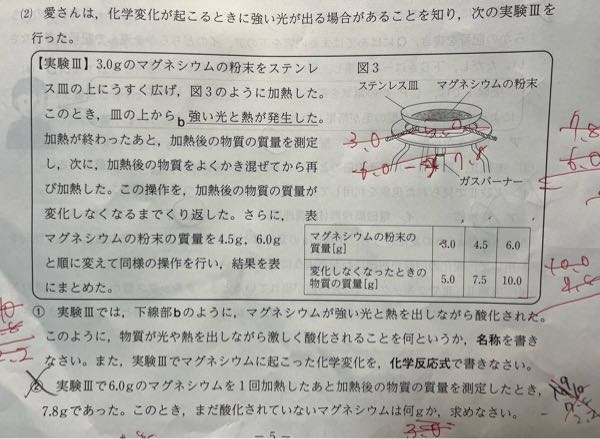 (2) 愛さんは，化学変化が起こるときに強い光が出る場合があることを知り，次の実験Ⅲを
行った。
【実験Ⅲ】 3.0gのマグネシウムの粉末をステンレ
ス皿の上にうすく広げ，図3のように加熱した。
このとき，皿の上からb強い光と熱が発生した。
加熱が終わったあと，加熱後の物質の質量を測定
し，次に，加熱後の物質をよくかき混ぜてから再
び加熱した。この操作を，加熱後の物質の質量が
変化しなくなるまでくり返した。さらに，
マグネシウムの粉末の質量を4.5g，6.0g
と順に変えて同様の操作を行い，結果を表
にまとめた。
図3
ステンレス皿 マグネシウムの粉末
ガスバーナー
3.0
7.8
7.8
6.0
表
マグネシウムの粉末の質量[g] 3.0 4.5 6.0
変化しなくなったときの物質の質量[g] 5.0 7.5 10.0
① 実験Ⅲでは，下線部bのように，マグネシウムが強い光と熱を出しながら酸化された。
このように，物質が光や熱を出しながら激しく酸化されることを何というか，名称を書き
なさい。また，実験Ⅲでマグネシウムに起こった化学変化を，化学反応式で書きなさい。
② 実験Ⅲで6.0gのマグネシウムを1回加熱したあと加熱後の物質の質量を測定したとき，
7.8gであった。このとき，まだ酸化されていないマグネシウムは何gか，求めなさい。
－5－
3.0